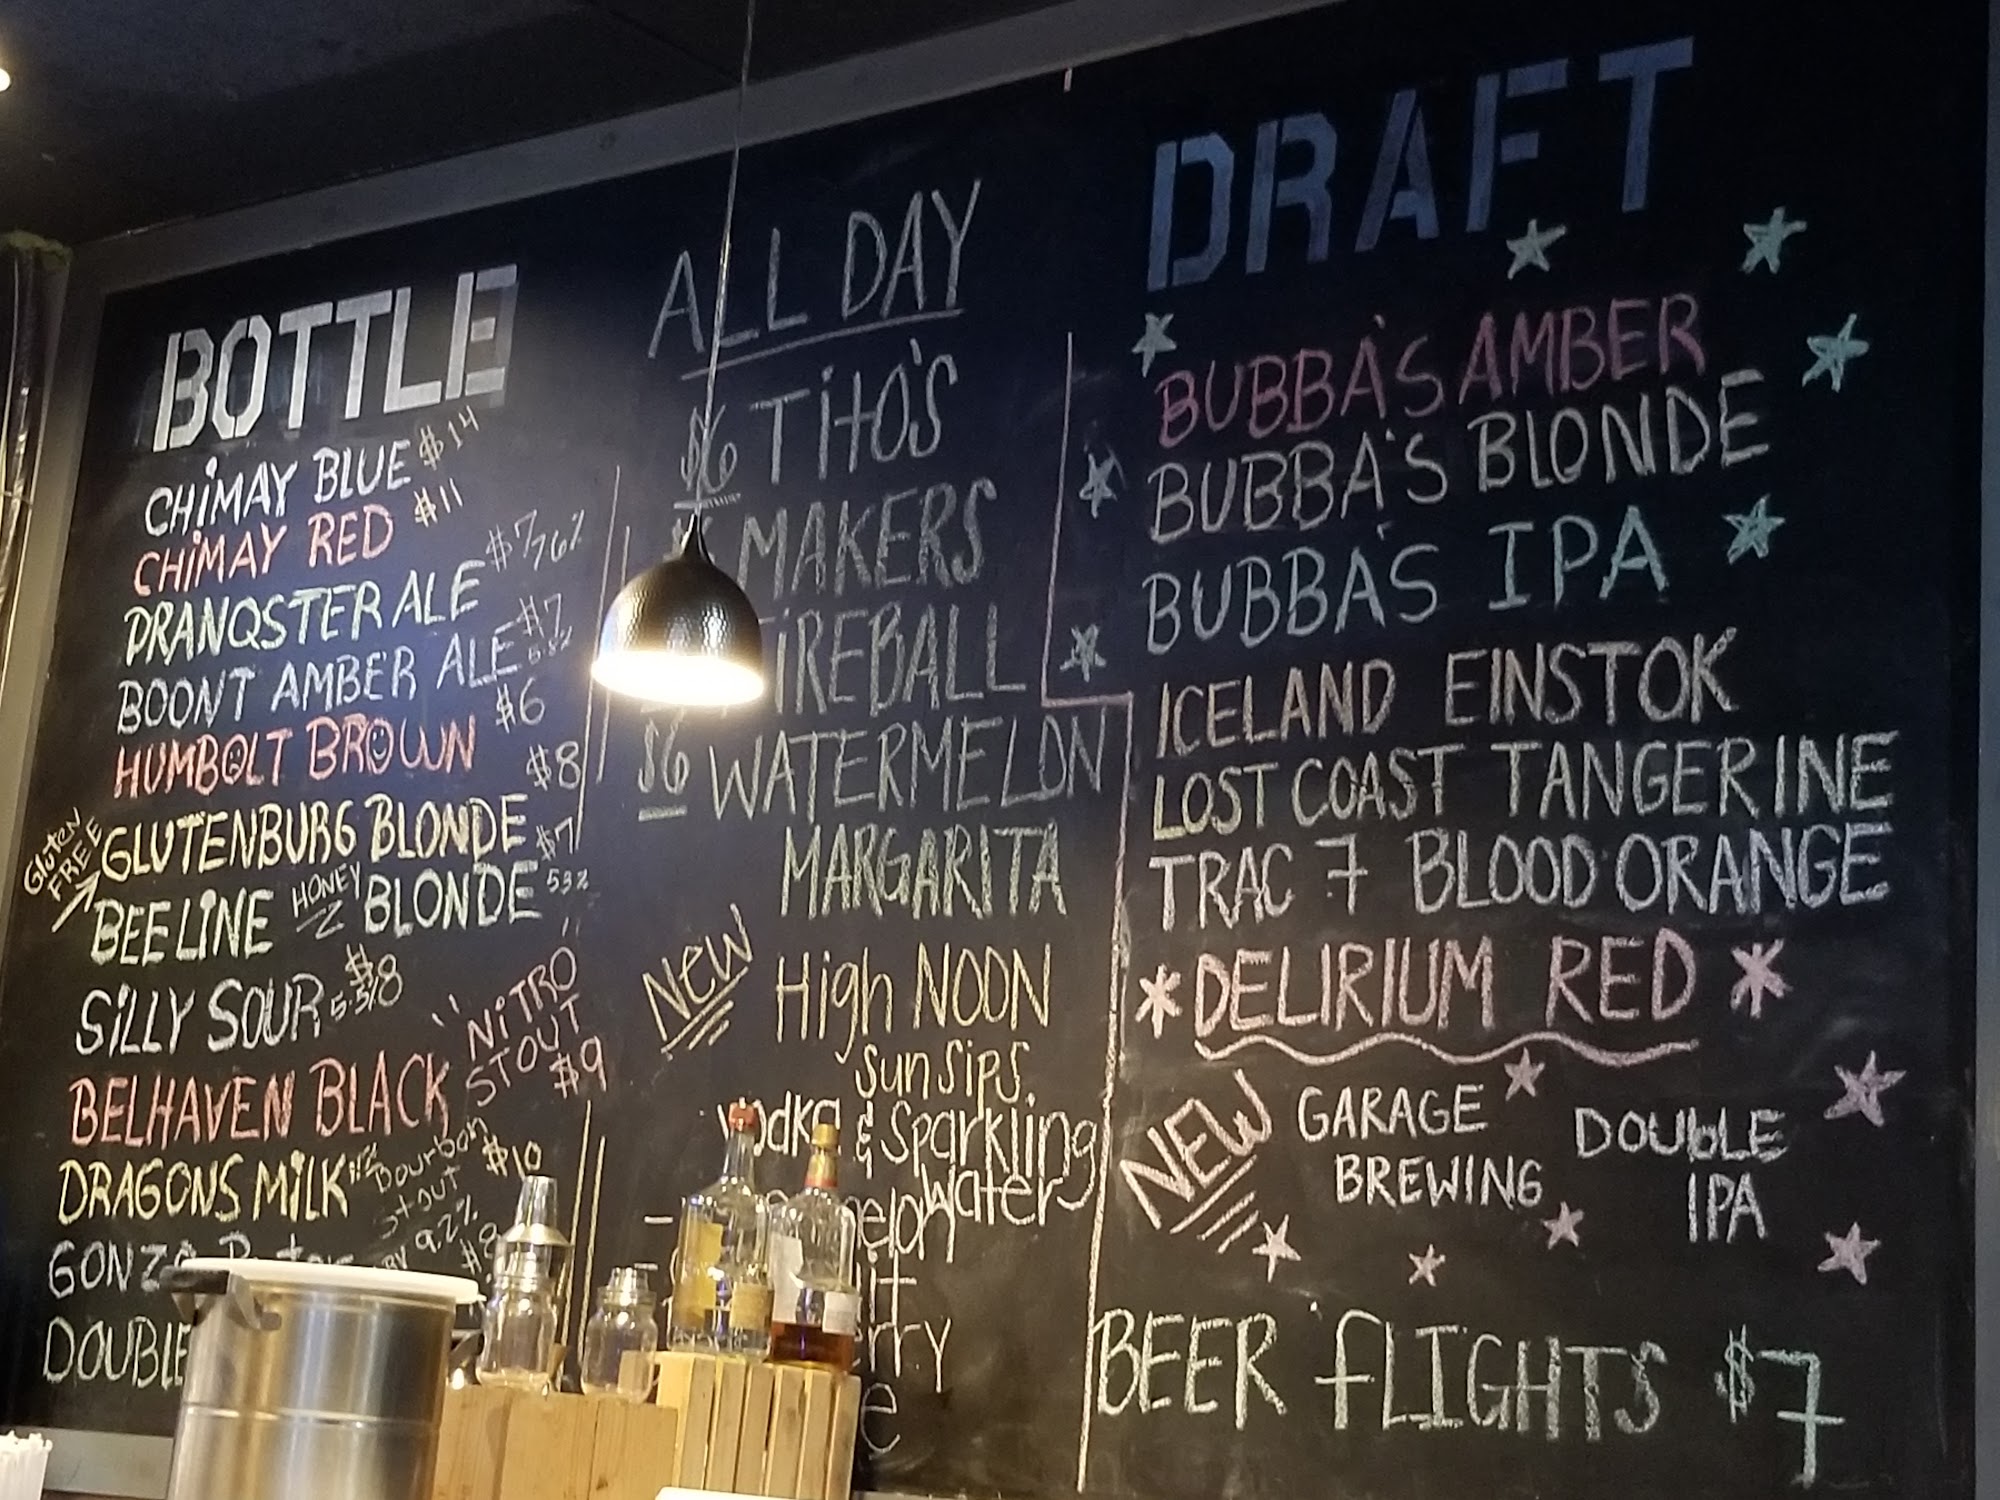 BOTTLE
CHIMAY BLUE $14
CHIMAY RED $11
PRANQSTER ALE $7 7.6%
BOONT AMBER ALE $7 5.8%
HUMBOLT BROWN $6
$8
Gluten FREE
GLUTENBURG BLONDE
BEELINE HONEY BLONDE $7 5.3%
SILLY SOUR 5.5% $8
BELHAVEN BLACK "NITRO STOUT" $9
DRAGONS MILK Bourbon stout $10
GONZO 9.2% $8
DOUBLE
ALL DAY
$6 TITO'S
MAKERS
FIREBALL
$6 WATERMELON
MARGARITA
NEW High NOON
Sun Sips
Vodka & Sparkling
Water
DRAFT
BUBBA'S AMBER
BUBBA'S BLONDE
BUBBA'S IPA
ICELAND EINSTOK
LOST COAST TANGERINE
TRAC 7 BLOOD ORANGE
*DELIRIUM RED*
NEW GARAGE BREWING DOUBLE IPA
BEER FLIGHTS $7